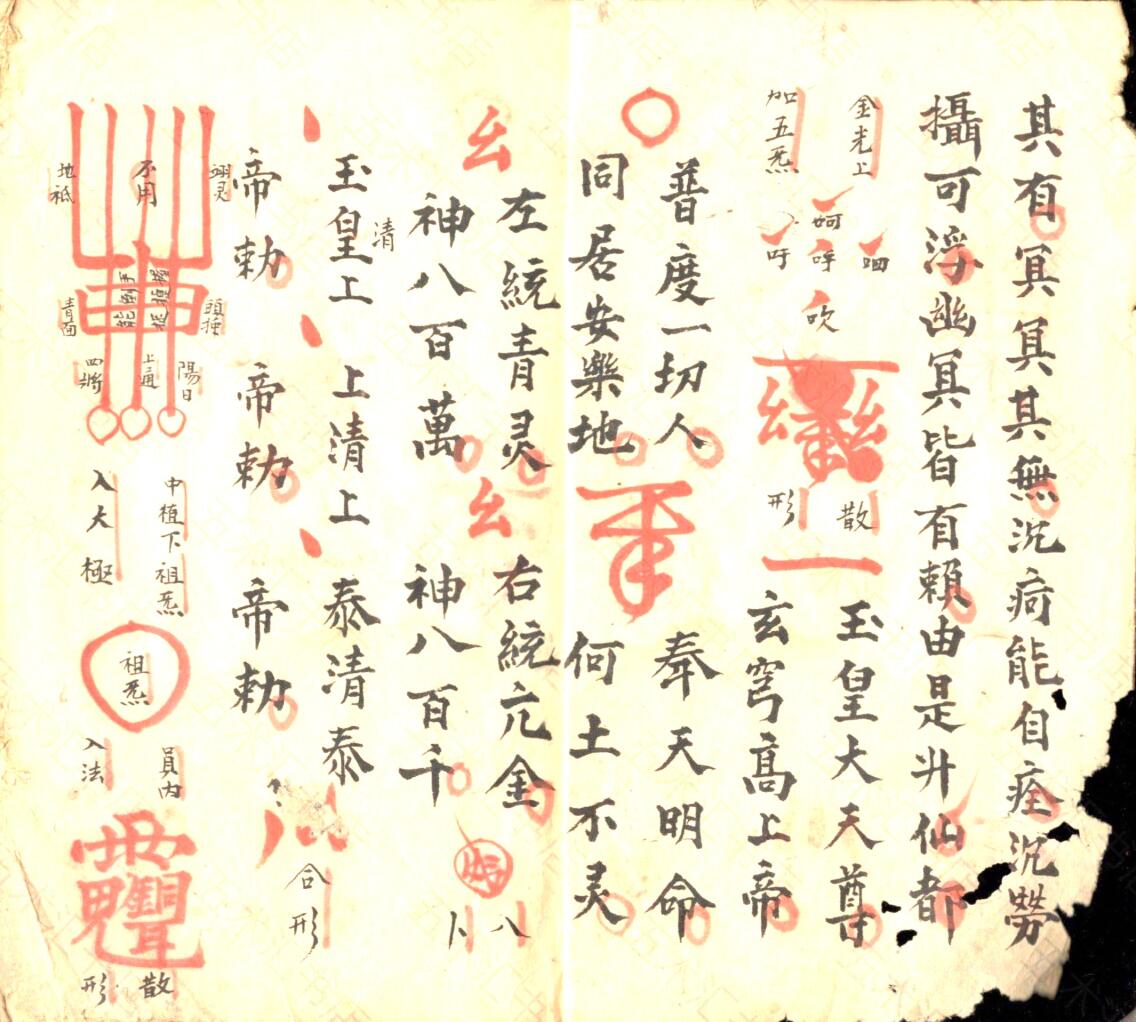 其有冥冥其無沉痾能自痊沉勞
攝可浮幽冥皆有賴由是升仙都
金光上
加五炁
呵
呬
呼
吁
吹
散
形
玉皇大天尊
玄穹高上帝
普度一切人
奉天明命
同居安樂地
何土不灵
左統青灵
右統元金
神八百萬
神八百千
八
卜
清
玉皇上
上清上
泰清泰
帝勅
帝勅
帝勅
合
形
翊灵
不用
地祇
頭
青面
陽日
上通
四將
中植下祖炁
入大極
祖炁
員内
入法
散
形